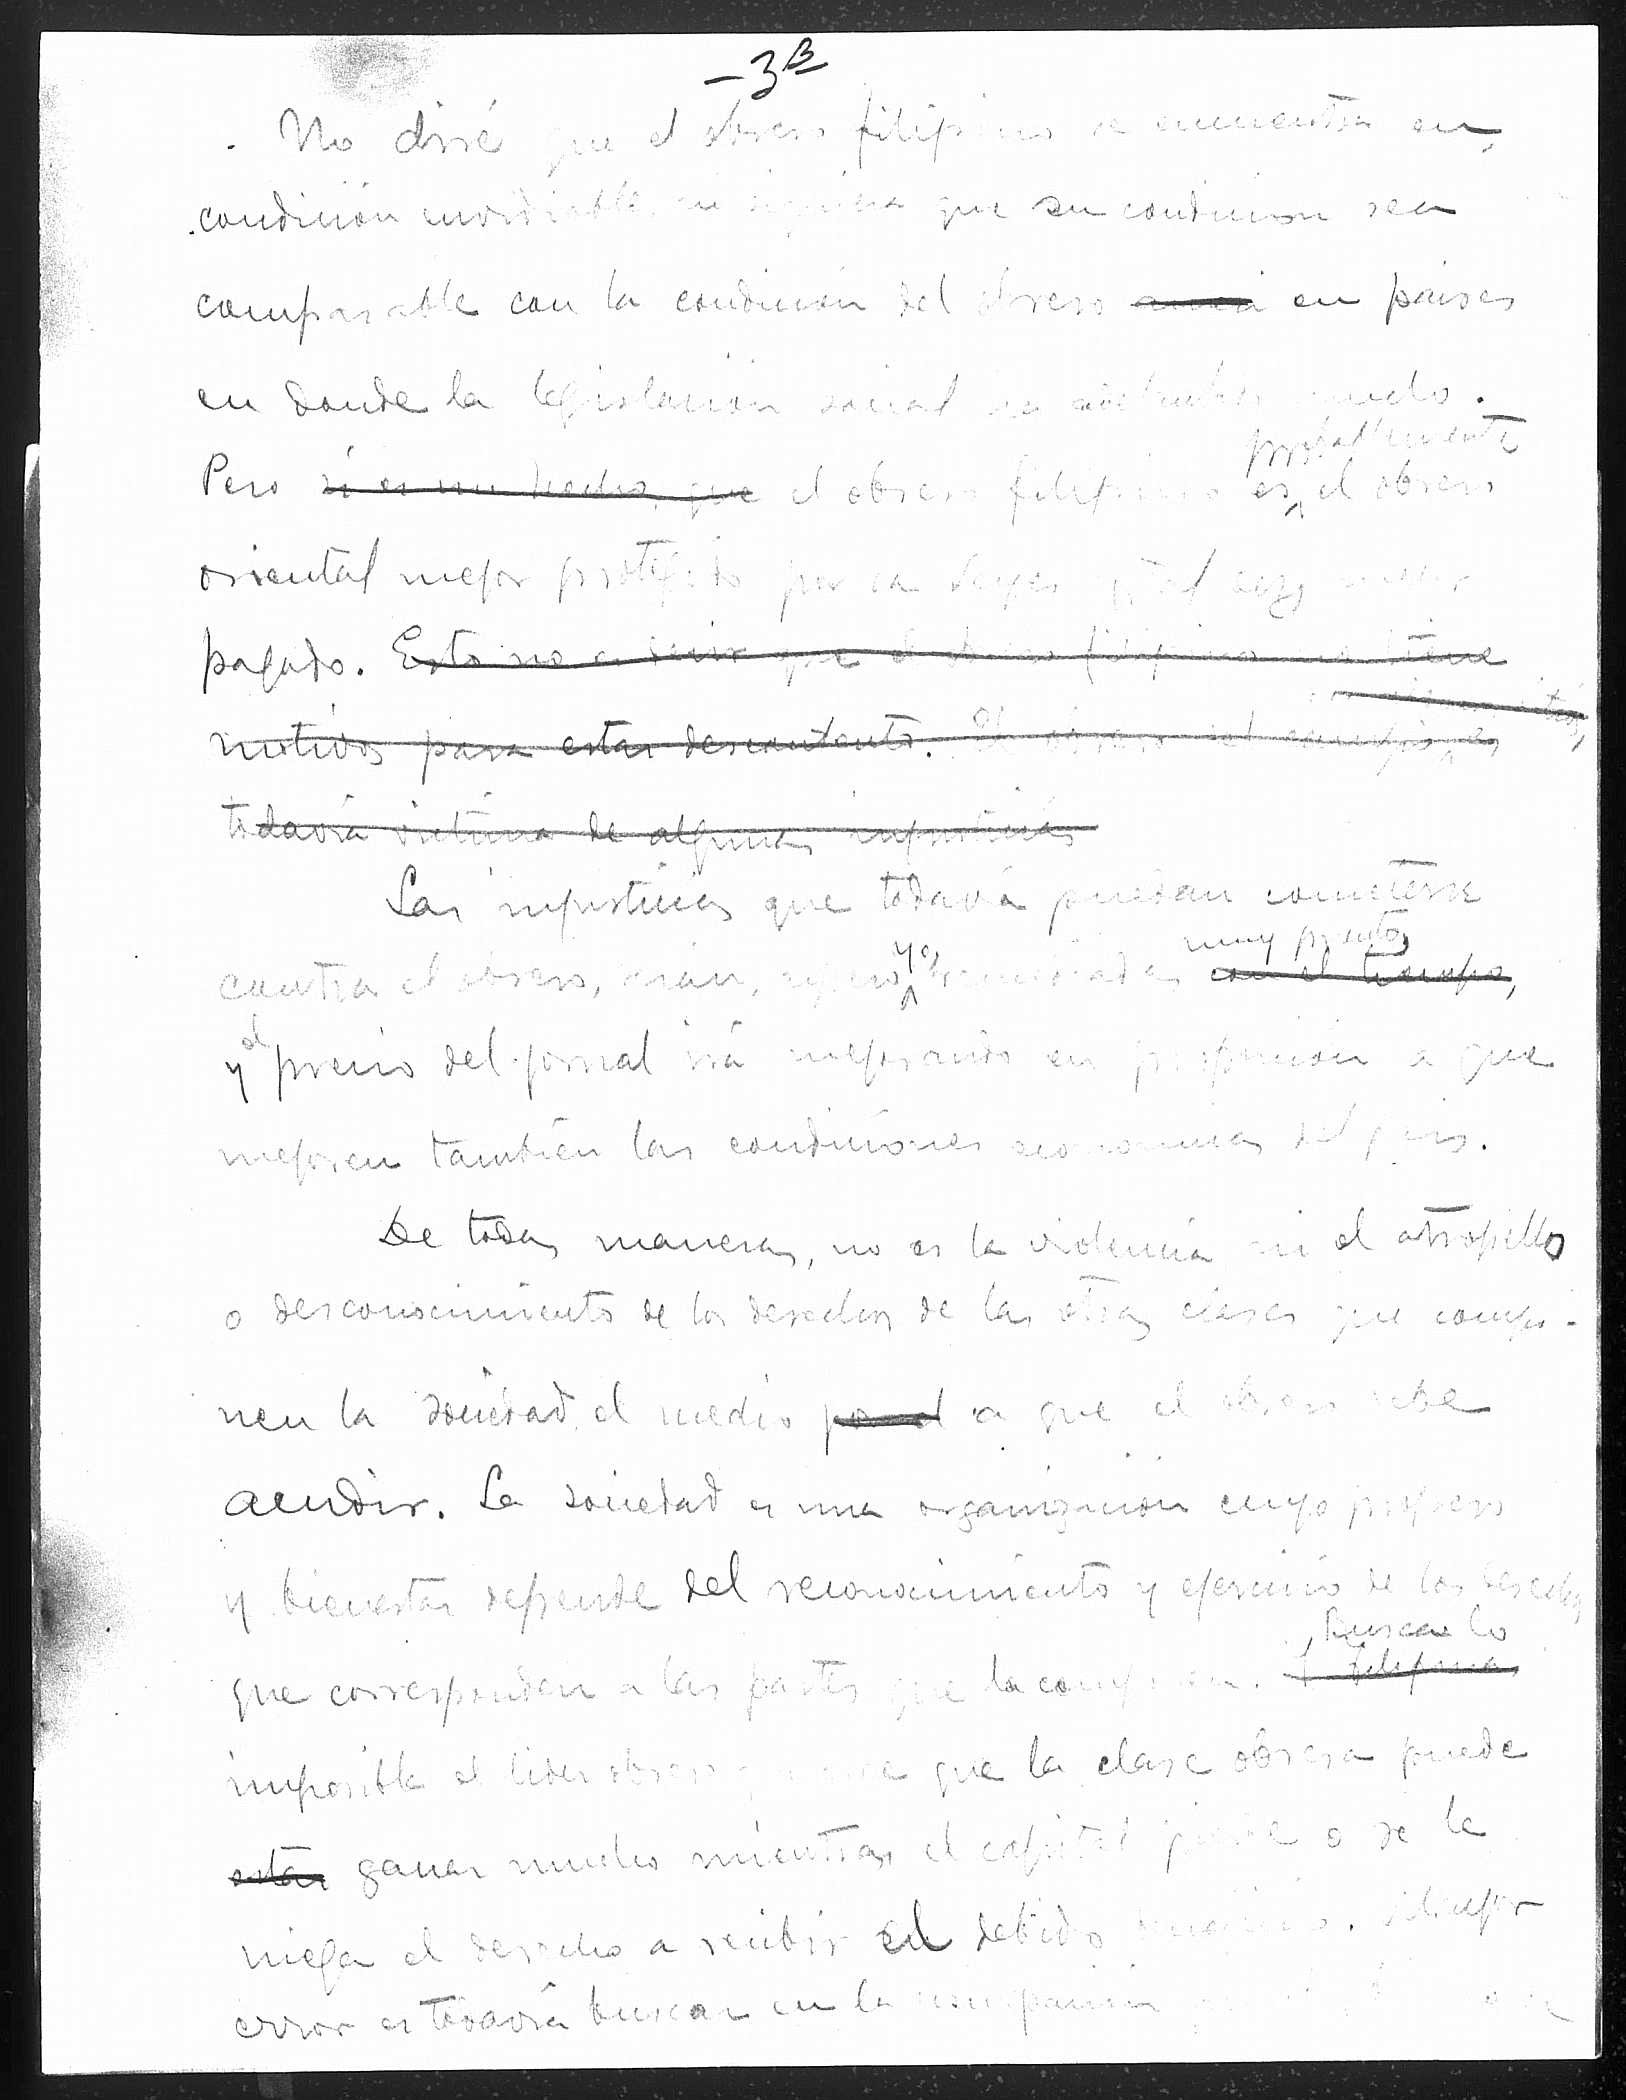 -3B
No diré que el obrero filipino se encuentra en
condición envidiable, ni siquiera que su condición sea
comparable con la condición del obrero en paises
en donde la legislación social ha adelantado mucho.
probablemente
Pero si es un hecho, que el obrero filipino es el obrero
oriental mejor protegido por las leyes y tal vez mejor
pagado. Esto no es decir que el obrero filipino no tiene
motivos para estar descontento. El obrero del campo, es
todavía víctima de algunas injusticias
Las injusticias que todavía puedan cometerse
yo, muy pronto,
contra el obrero, serán, espero remediadas con el tiempo,
el
y precio del jornal irá mejorando en proporción a que
mejoren también las condiciones económicas del país.
De todas maneras, no es la violencia ni el atropello
o desconocimiento de los derechos de las otras clases que compo-
nen la sociedad, el medio a que el obrero debe
acudir. La sociedad es una organización cuyo progreso
y bienestar depende del reconocimiento y ejercicio de los derechos
, Busca lo
que corresponden a las partes que la componen.
imposible el lider obrero que cree que la clase obrera puede
estar ganar mucho mientras el capital pierde o se le
niega el derecho a recibir el debido beneficio. Mayor
error es todavía buscar en la usurpación